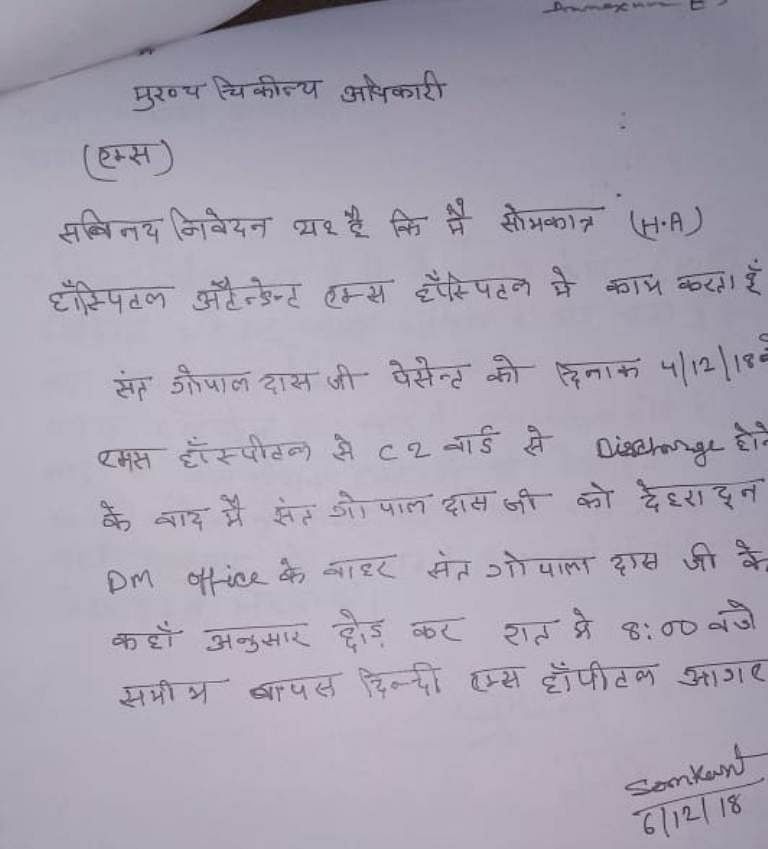 Annexure E
मुख्य चिकीत्य अधिकारी
(एम्स)
सविनय निवेदन यह है कि मै सोमकान्त (H.A)
हॉस्पिटल अटैन्डेन्ट एम्स हॉस्पिटल मे काम करता हूँ
संत गोपाल दास जी पेसेन्ट को दिनाक 4/12/18 के
एमस हॉस्पीटल से C 2 वार्ड से Discharge होने
के बाद मै संत गोपाल दास जी को देहरादून
DM office के बाहर संत गोपाल दास जी के
कहाँ अनुसार छोड़ कर रात मे 8:00 बजे
समीम वापस दिल्ली एम्स हॉपीटल आगए
Somkant
6/12/18